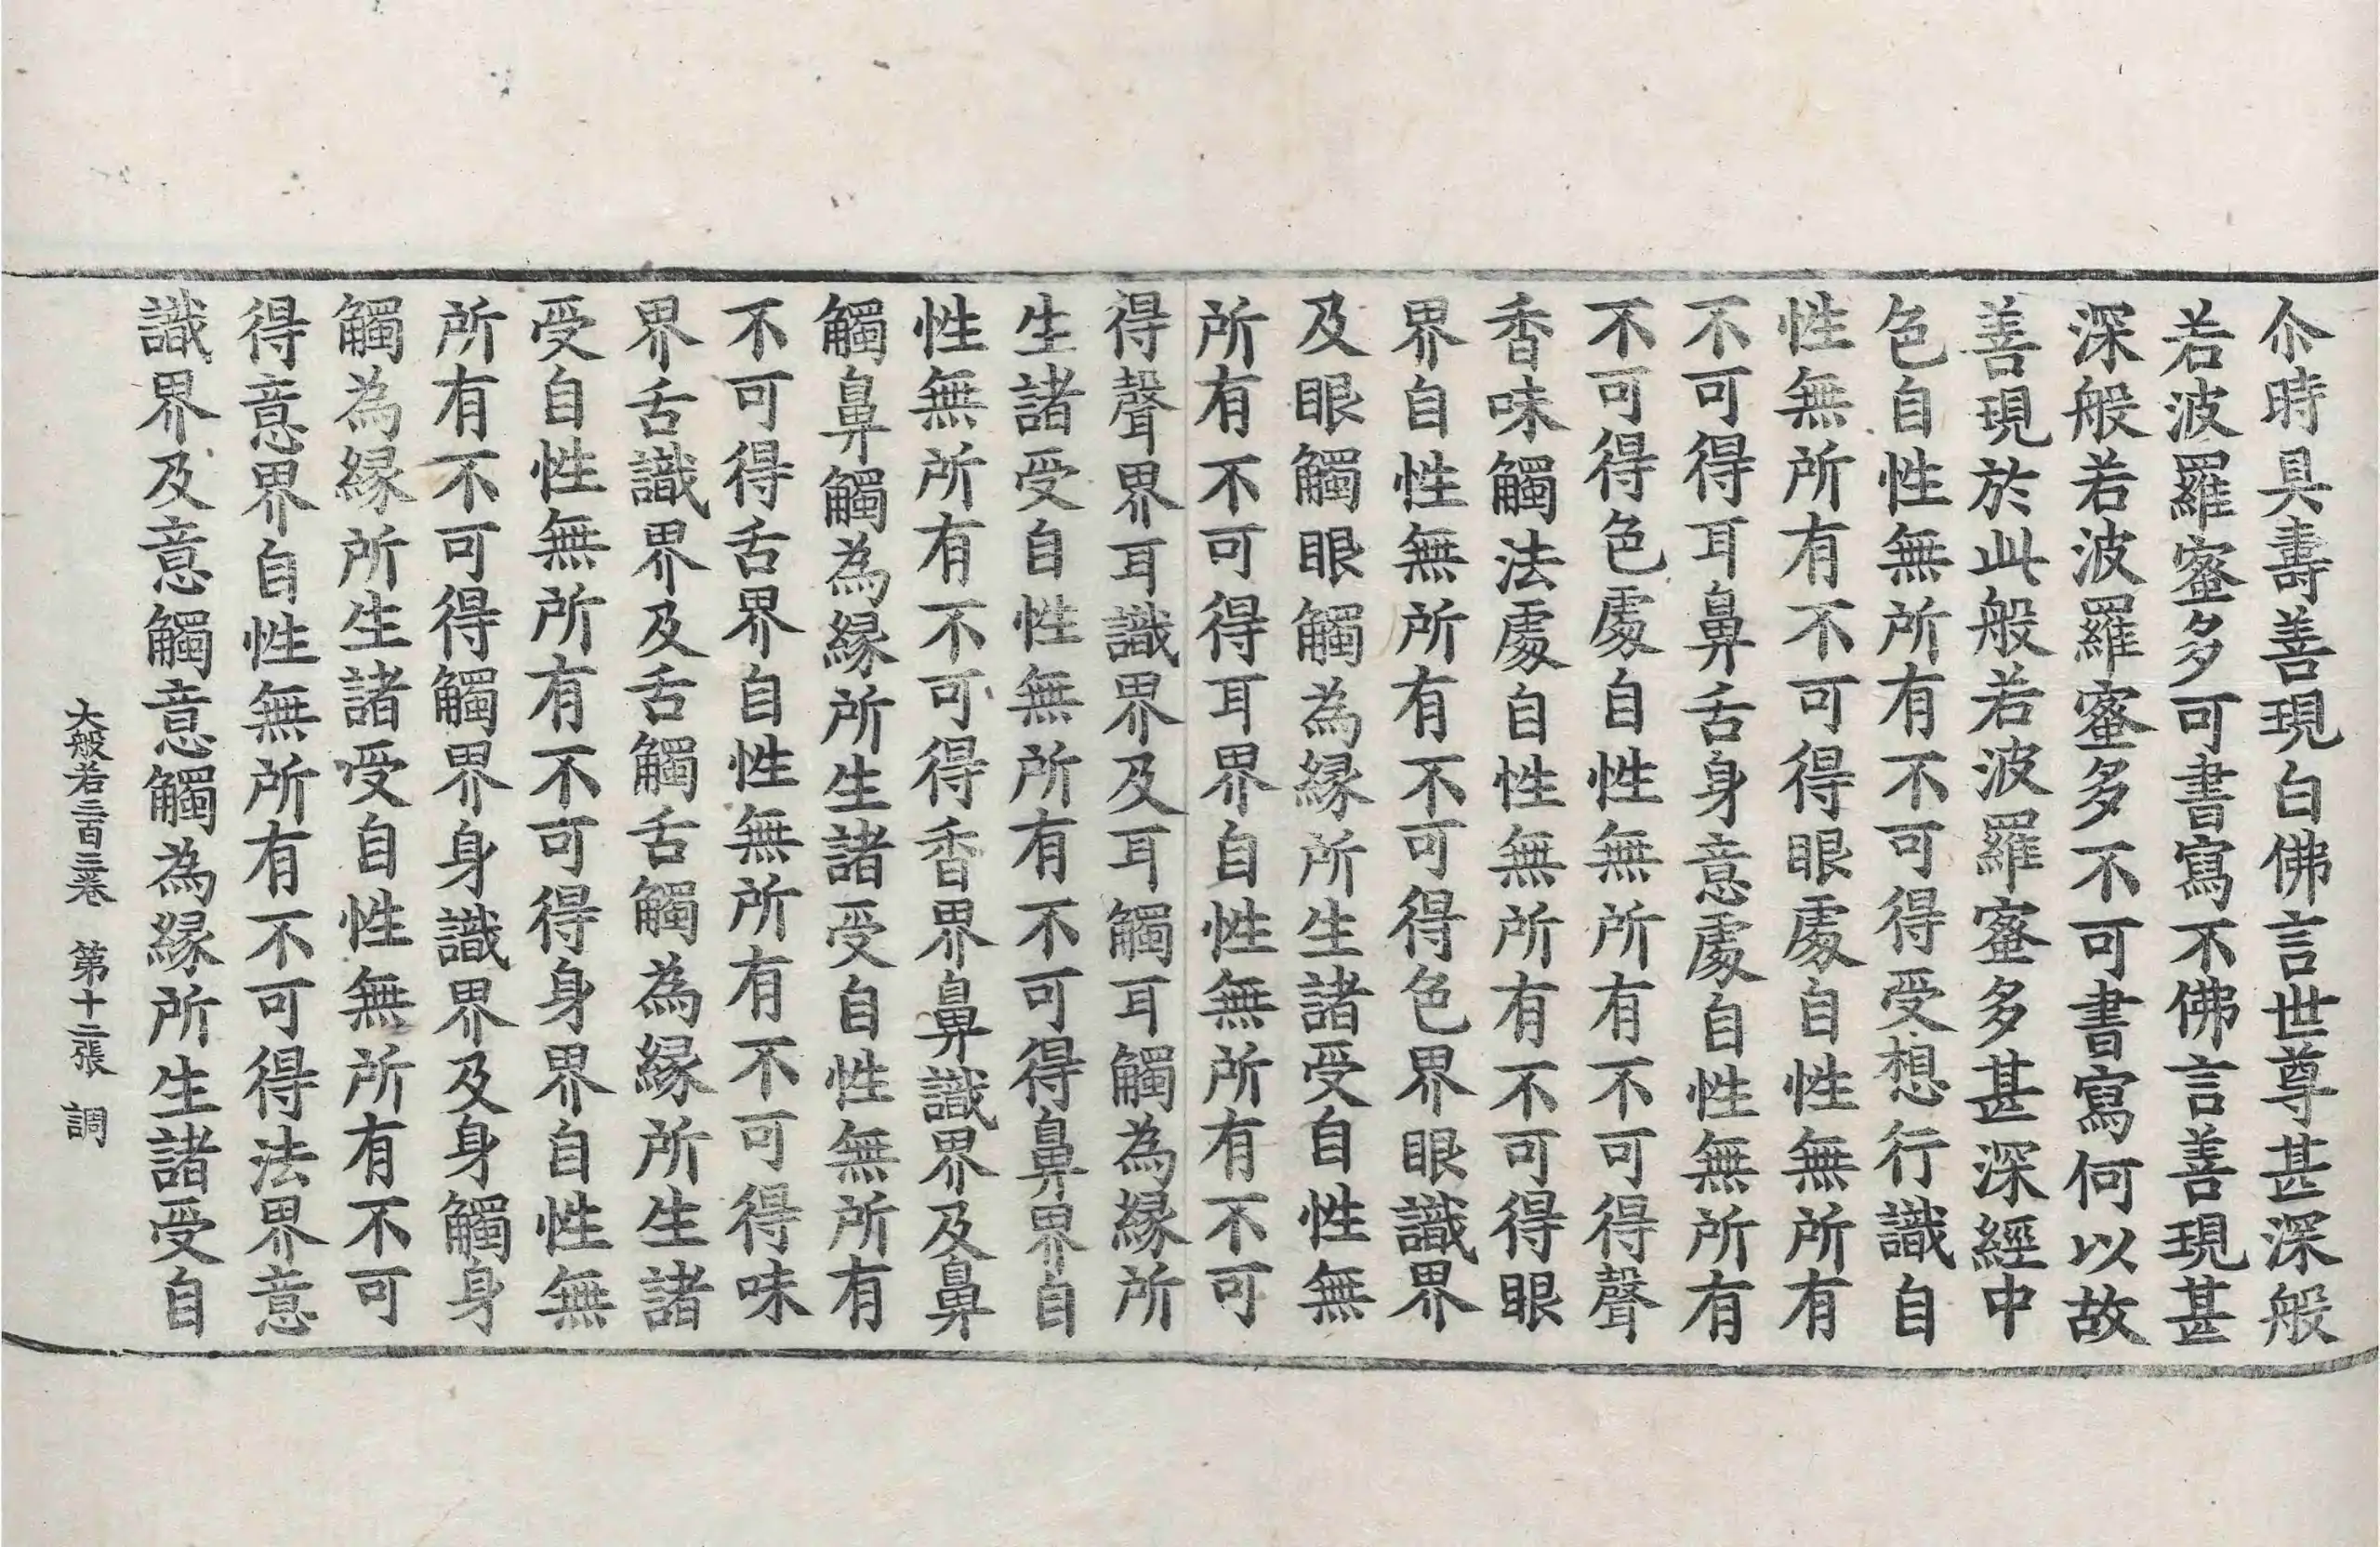 尒時具壽善現白佛言世尊甚深般
若波羅蜜多可書寫不佛言善現甚
深般若波羅蜜多不可書寫何以故
善現於此般若波羅蜜多甚深經中
色自性無所有不可得受想行識自
性無所有不可得眼處自性無所有
不可得耳鼻舌身意處自性無所有
不可得色處自性無所有不可得聲
香味觸法處自性無所有不可得眼
界自性無所有不可得色界眼識界
及眼觸眼觸為緣所生諸受自性無
所有不可得耳界自性無所有不可
得聲界耳識界及耳觸耳觸為緣所
生諸受自性無所有不可得鼻界自
性無所有不可得香界鼻識界及鼻
觸鼻觸為緣所生諸受自性無所有
不可得舌界自性無所有不可得味
界舌識界及舌觸舌觸為緣所生諸
受自性無所有不可得身界自性無
所有不可得觸界身識界及身觸身
觸為緣所生諸受自性無所有不可
得意界自性無所有不可得法界意
識界及意觸意觸為緣所生諸受自
大般若三百三卷 第十二張 調